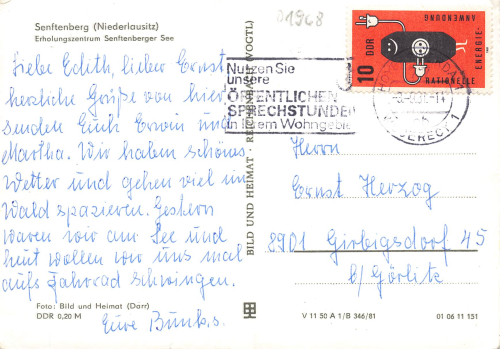 Senftenberg (Niederlausitz)
Erholungszentrum Senftenberger See
01968
Liebe Edith, lieber Ernst
herzliche Grüße von hier
senden Euch Erwin und
Martha. Wir haben schönes
Wetter und gehen viel im
Wald spazieren. Gestern
waren wir am See und
heut wollen wir uns mal
aufs Fahrrad schwingen.
Eure Bunks.
Foto: Bild und Heimat (Darr)
DDR 0,20 M
BILD UND HEIMAT · REICHENBACH (VOGTL)
Nutzen Sie
unsere
ÖFFENTLICHEN
SPRECHSTUNDEN
in Ihrem Wohngebiet
10 DDR
RATIONELLE ENERGIE-
ANWENDUNG
1
Herrn
Ernst Herzog
8901 Girbigsdorf 45
b/Görlitz
V 11 50 A 1/B 346/81
01 06 11 151